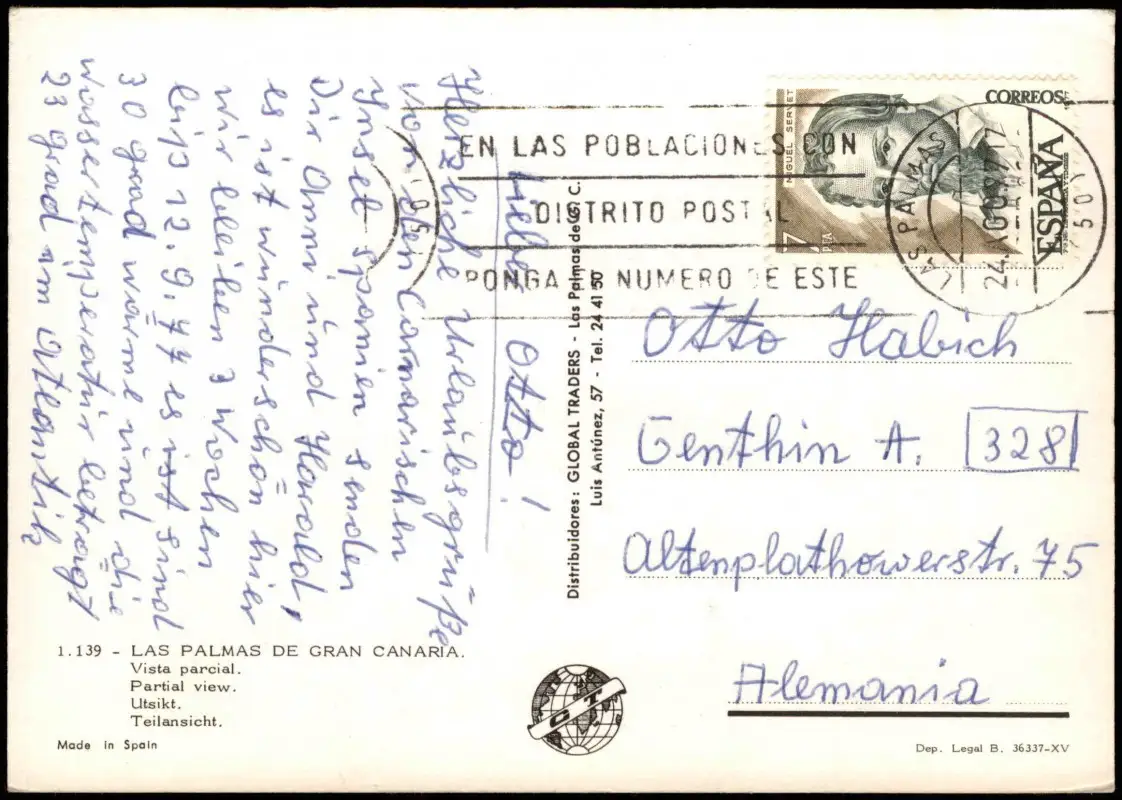 Lieber Otto!
Herzliche Urlaubsgrüße
von den Canarischen
Inseln Spanien senden
Dir Anni und Harald,
es ist wunderschön hier
wir bleiben 3 Wochen
bis 12.9.77 es ist sind
30 grad warme und die
wassertemperatur beträgt
23 grad am Atlantik
EN LAS POBLACIONES CON
DISTRITO POSTAL
PONGA NUMERO DE ESTE
MIGUEL SERVET
CORREOS
ESPAÑA
7
PTA
LAS PALMAS
24. AGO 77
Otto Habich
Genthin A. 328
Altenplathowerstr. 75
Alemania
Distribuidores: GLOBAL TRADERS - Las Palmas de G. C.
Luis Antúnez, 57 - Tel. 24 41 50
1.139 - LAS PALMAS DE GRAN CANARIA.
Vista parcial.
Partial view.
Utsikt.
Teilansicht.
Made in Spain
GT
Dep. Legal B. 36337-XV